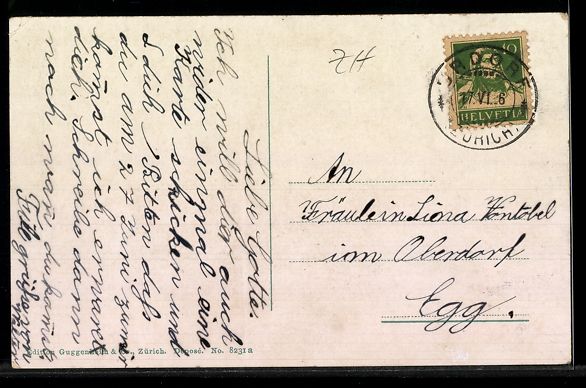 Liebe Gotte.
Ich will dir auch
wider einmal eine
Karte schicken und
dich Bitten daß
du am 27 Juni zu mir
kommst ich erwarte
dich. Schreibe dann
noch wan du kommst.
ZH
URDORF
17.VI.
(ZÜRICH)
10
HELVETIA
An
Fräulein Lina Kuntobel
im Oberdorf
Egg.
Edition Guggenheim & Co., Zürich. Déposé. No. 8231a